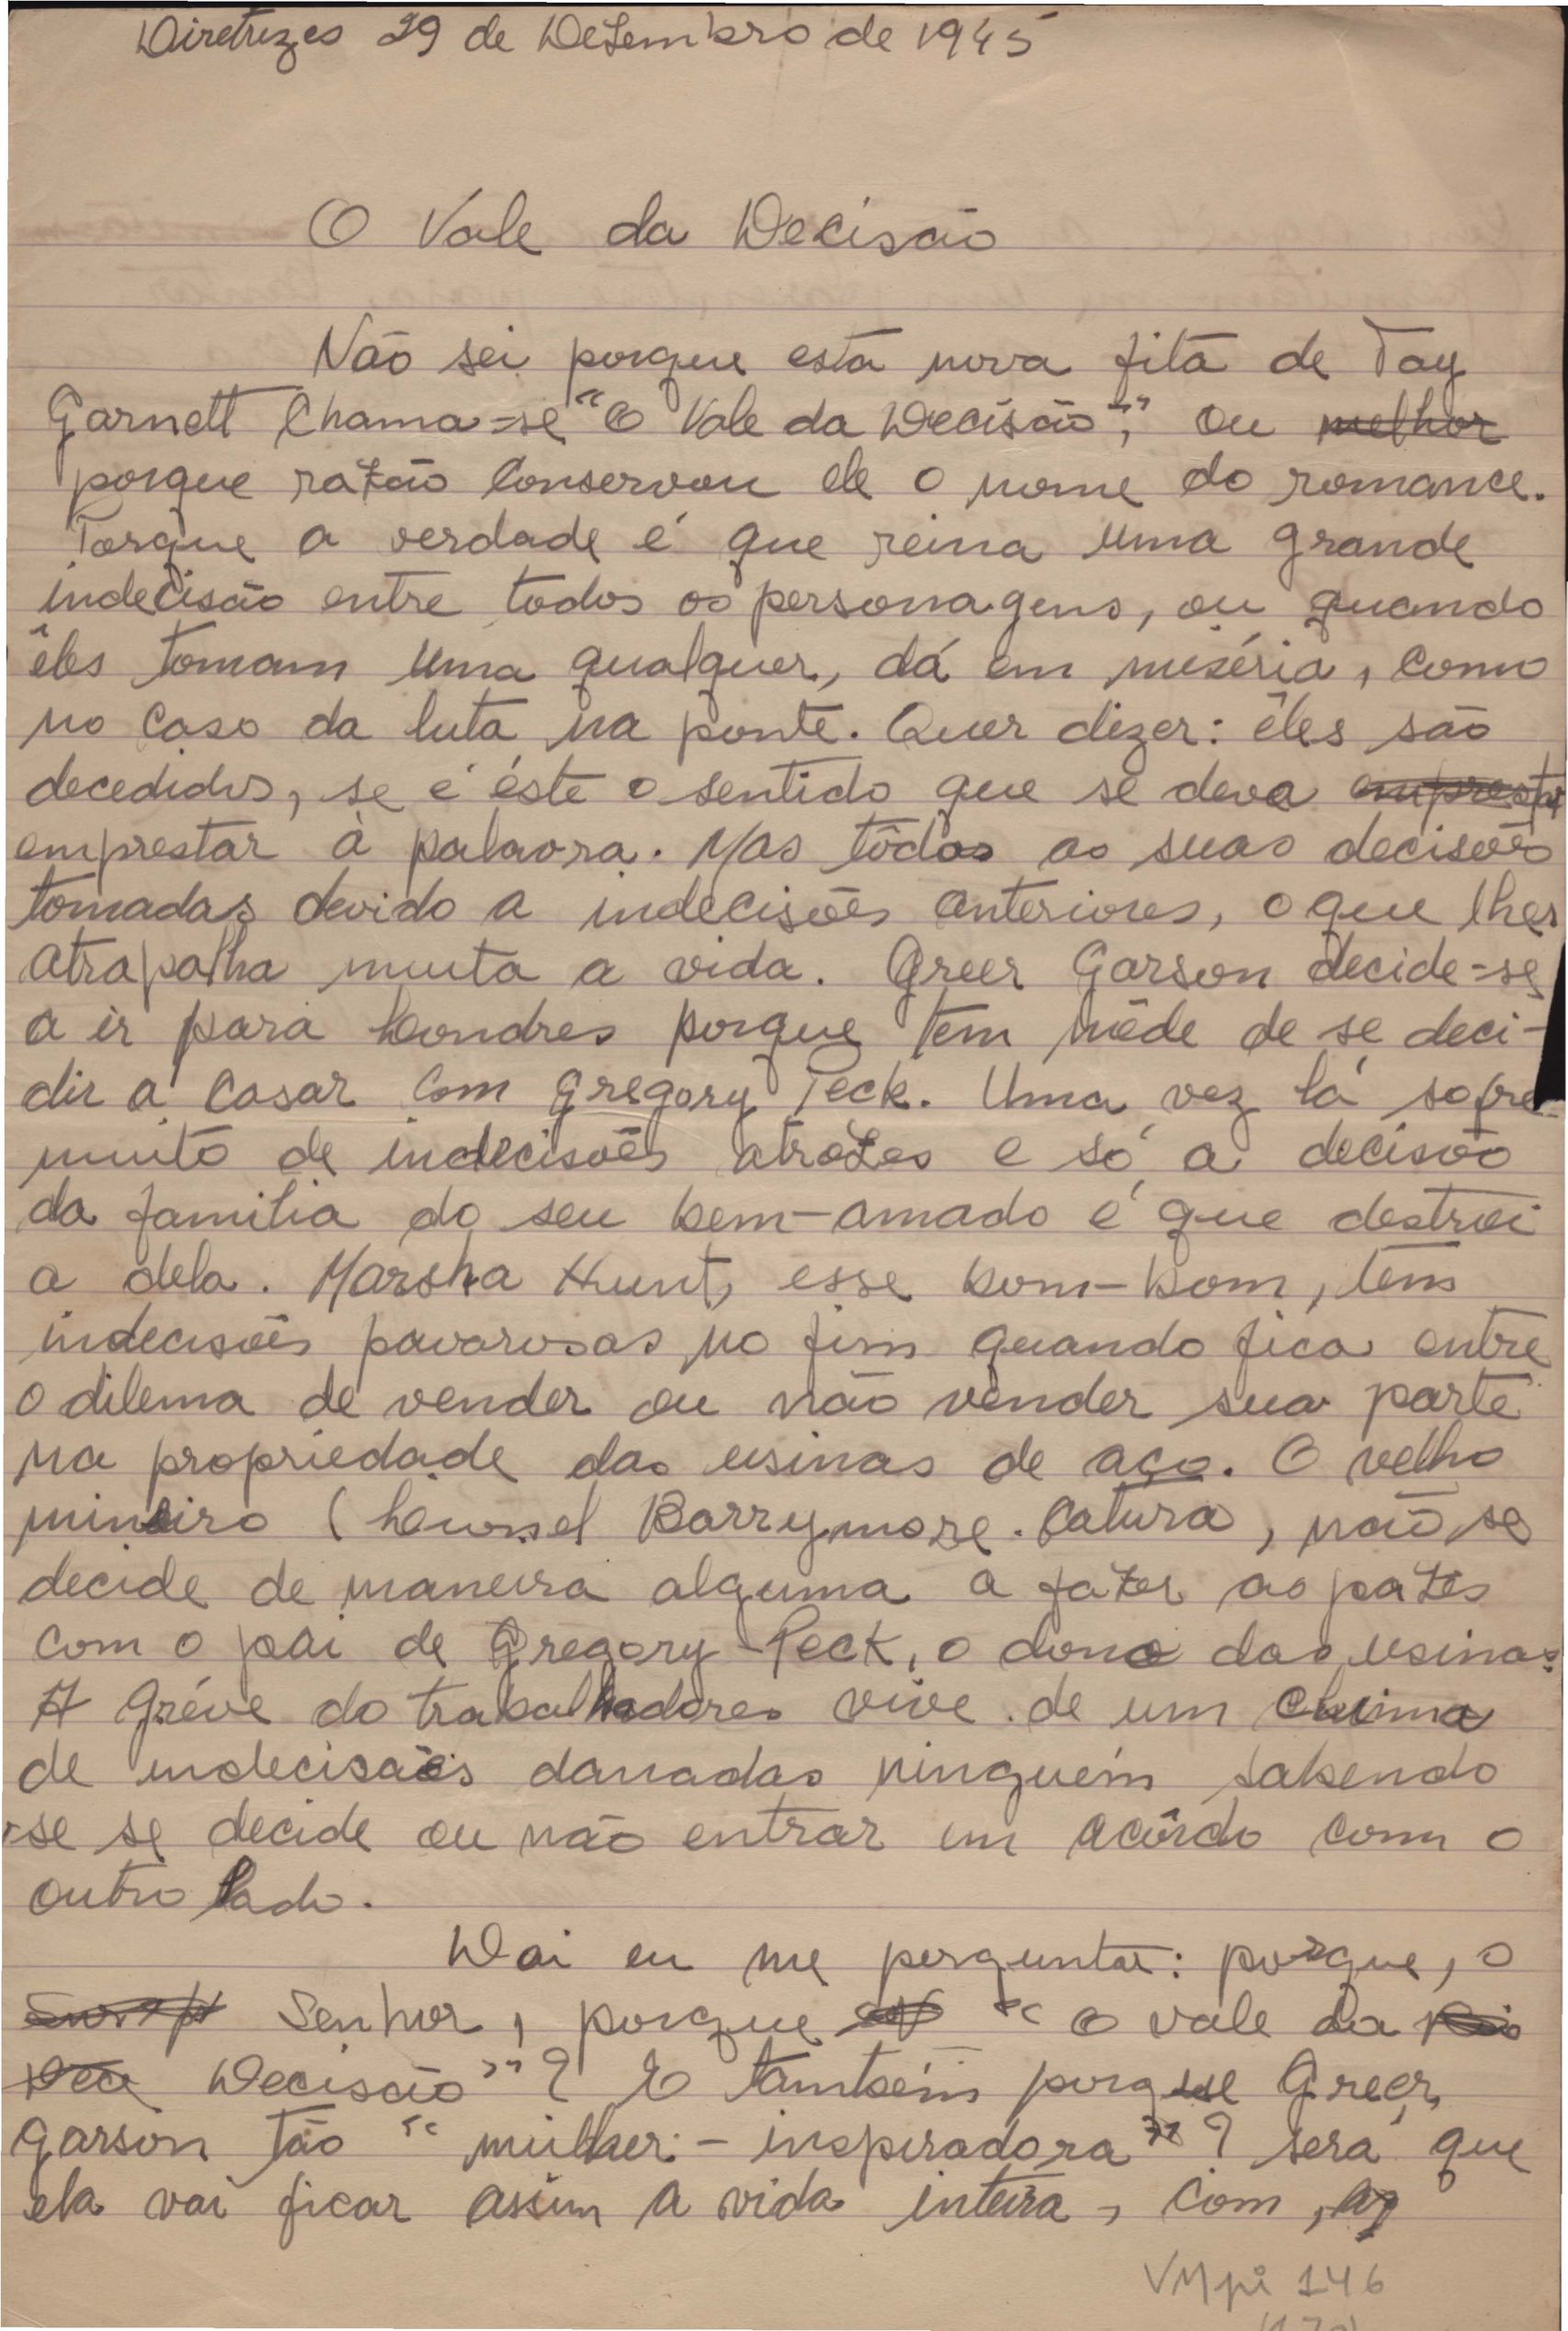 Diretrizes 29 de Dezembro de 1945
O Vale da Decisão
Não sei porque esta nova fita de Tay
Garnett chama-se "O Vale da Decisão", ou melhor
porque razão conservou ele o nome do romance.
Porque a verdade é que reina uma grande
indecisão entre todos os personagens, ou quando
êles tomam uma qualquer, dá em miséria, como
no caso da luta na ponte. Quer dizer: êles são
decedidos, se é êste o sentido que se deva emprestar
emprestar à palavra. Mas tôdas as suas decisões
tomadas devido a indecisões anteriores, o que lhes
atrapalha muita a vida. Greer Garson decide-se
a ir para Londres porque tem mêde de se deci-
dir a casar com Gregory Peck. Uma vez lá sofre
muito de indecisões atrozes e só a decisão
da familia do seu bem-amado é que destroi
a dela. Marsha Hunt, esse bom-bom, tem
indecisões pavorosas no fim quando fica entre
o dilema de vender ou não vender sua parte
na propriedade das usinas de aço. O velho
mineiro (Leionel Barrymore. Catura, não se
decide de maneira alguma a fazer as pazes
com o pai de Gregory Peck, o dono das usinas.
A Gréve do trabalhadores vive de um clima
de indecisões danadas ninguém sabendo
-se se decide ou não entrar em acôrdo com o
outro lado.
Dai eu me perguntar: porque, o
Senhor, porque "O vale da
Decisão"? E também porque Greer
Garson tão "mulher-inspiradora"? será que
ela vai ficar assim a vida inteira, com,
VMpi 146